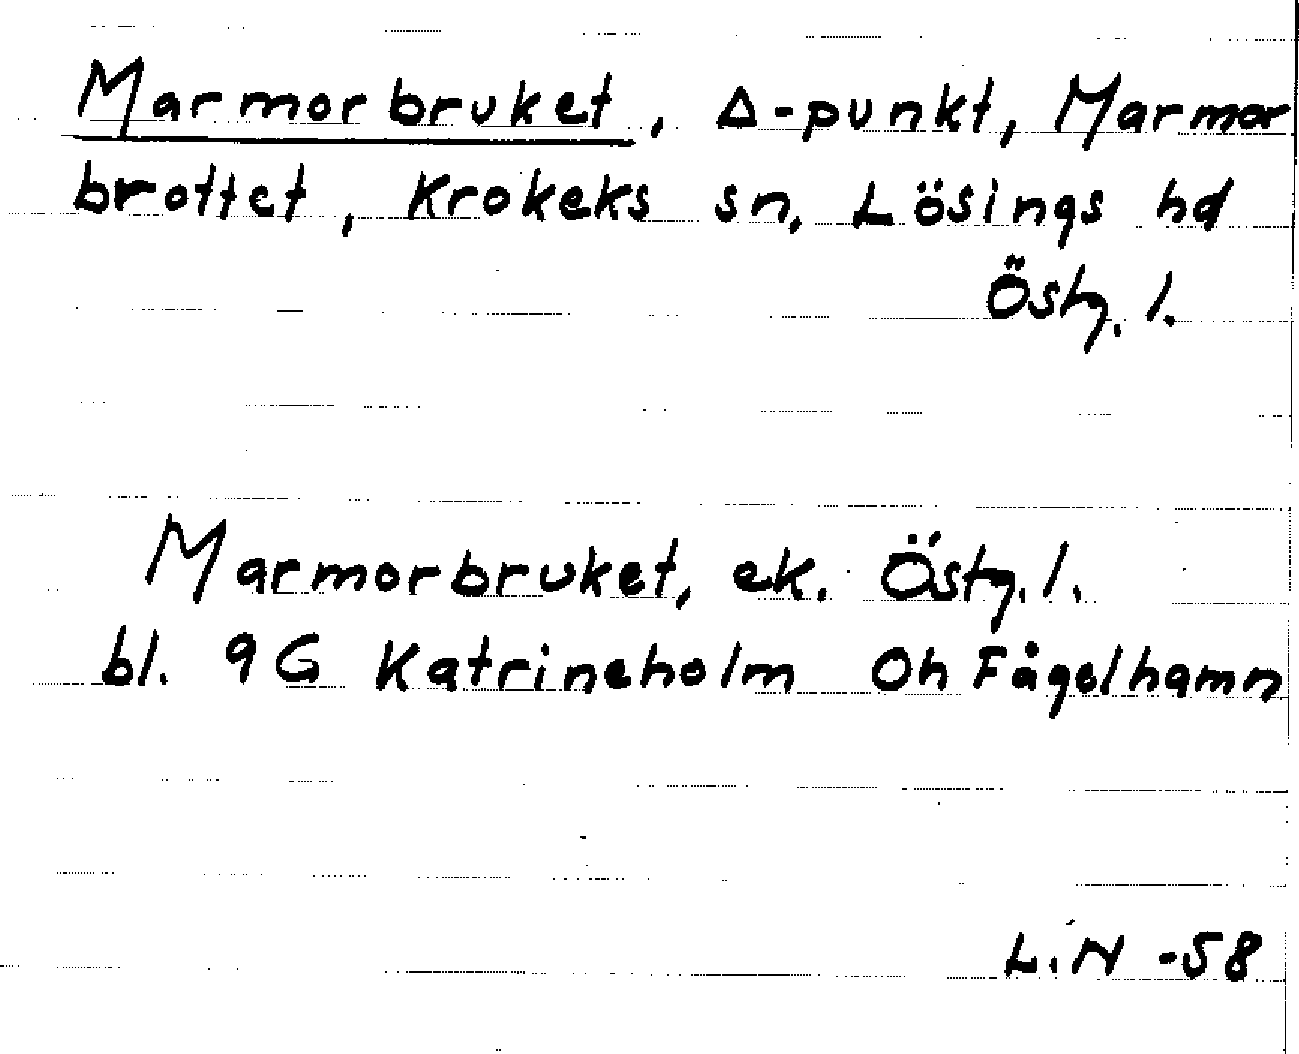 Marmorbruket, Δ-punkt, Marmor
brottet, Krokeks sn, Lösings hd
Östg. l.
Marmorbruket, ek. Östg. l.
bl. 9G Katrineholm Oh Fågelhamn
L.N -58